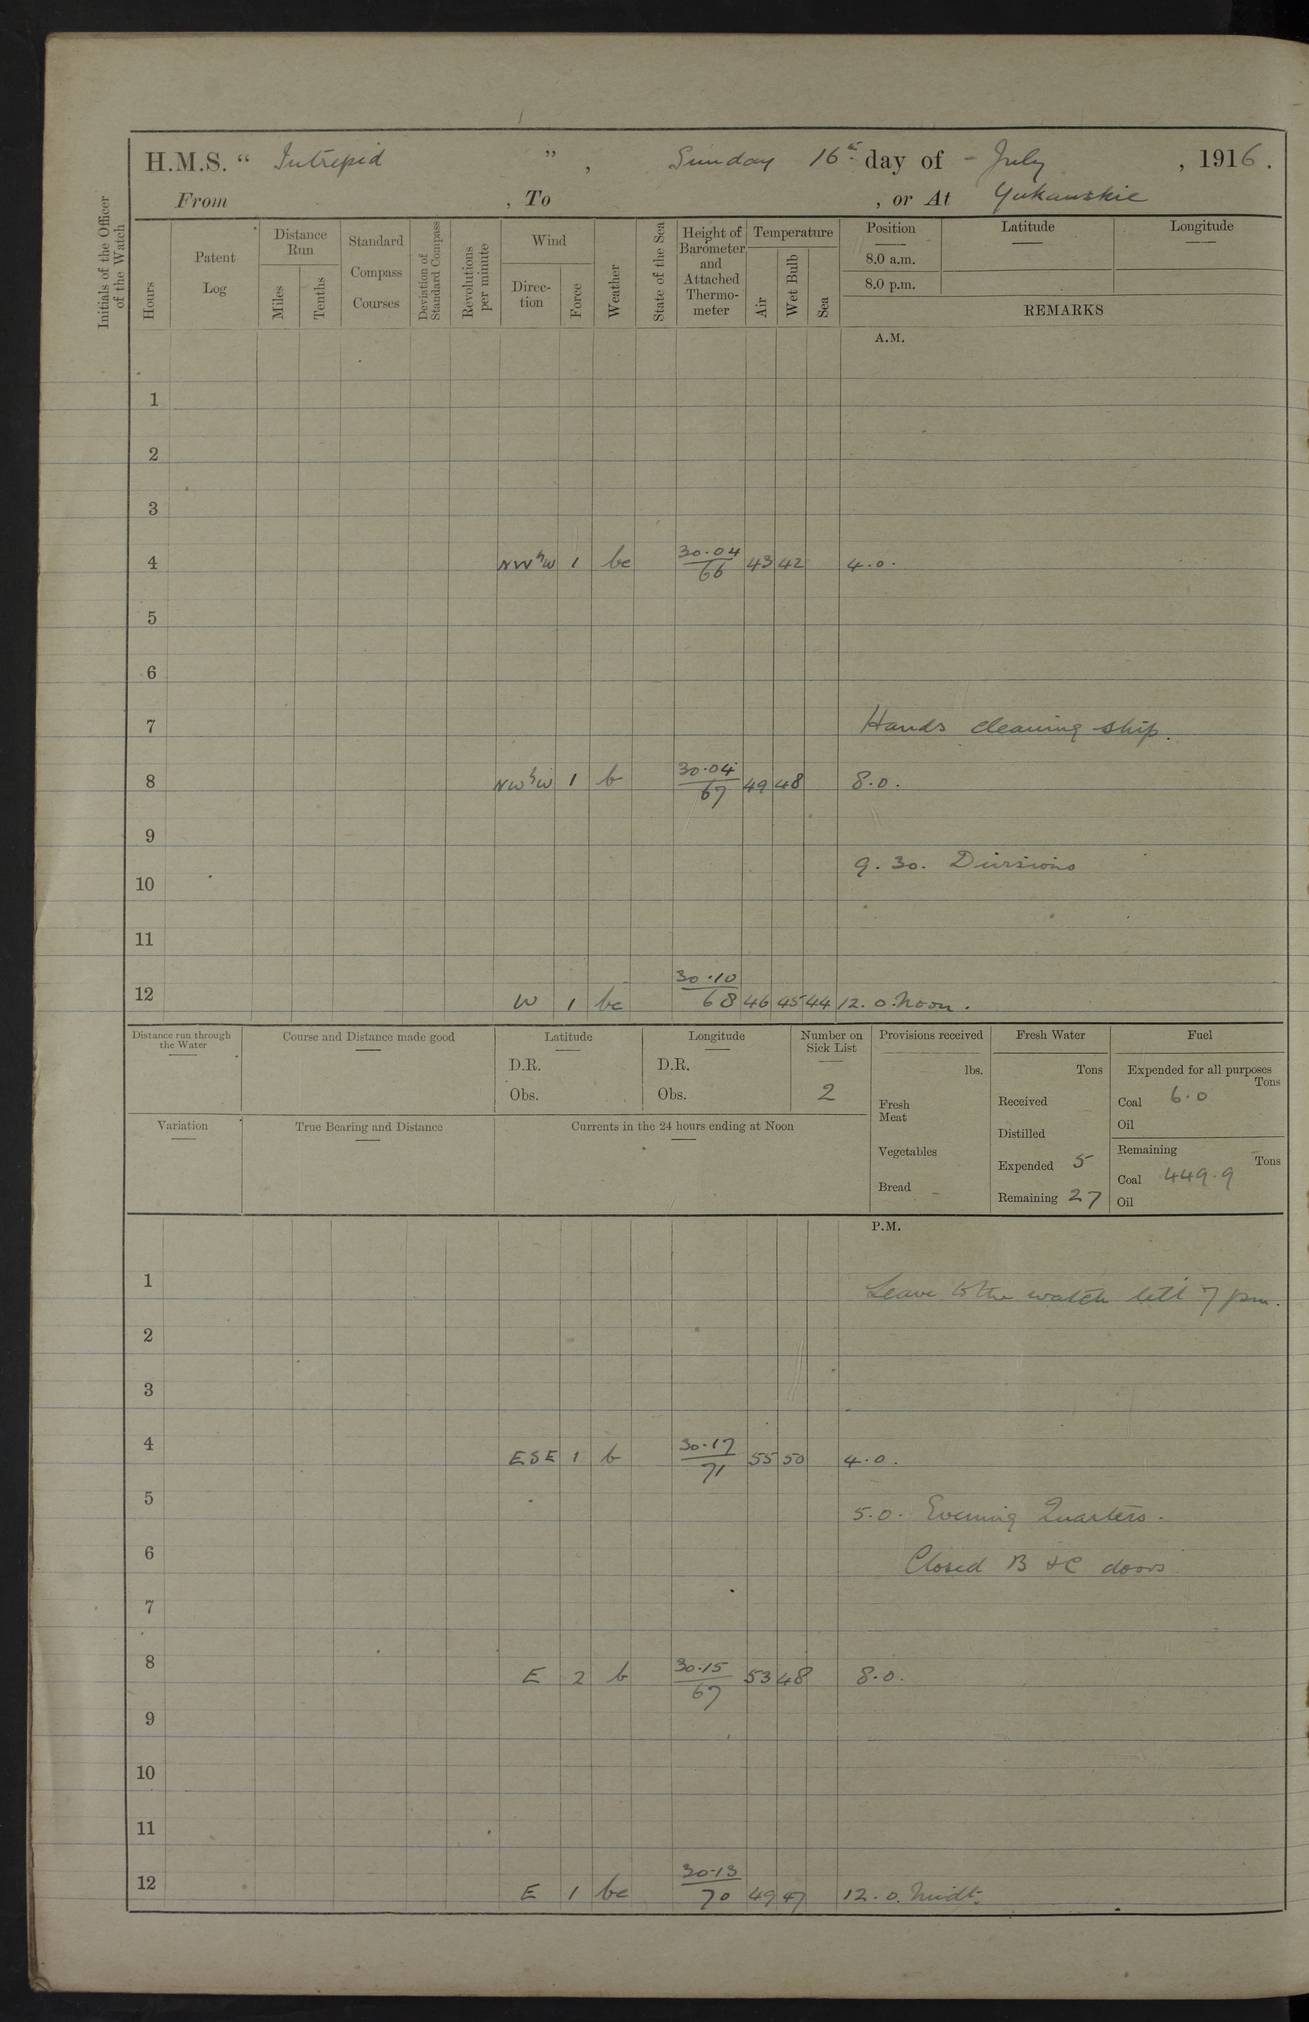 H.M.S. " Intrepid " , Sunday 16th day of July , 1916.
From , To , or At Yukanskie
Initials of the Officer of the Watch
Hours
Patent Log
Distance Run
Miles
Tenths
Standard Compass Courses
Deviation of Standard Compass
Revolutions per minute
Wind
Direction
Force
Weather
State of the Sea
Height of Barometer and Attached Thermometer
Temperature
Air
Wet Bulb
Sea
Position
8.0 a.m.
8.0 p.m.
Latitude
Longitude
REMARKS
A.M.
1
2
3
4 NW b W 1 bc 30.04/66 43 42 4.0.
5
6
7 Hands cleaning ship.
8 NW b W 1 b 30.04/67 49 48 8.0.
9
9.30. Divisions
10
11
12 W 1 bc 30.10/68 46 45 44 12.0. Noon.
Distance run through the Water
Course and Distance made good
Latitude
D.R.
Obs.
Longitude
D.R.
Obs.
Number on Sick List
2
Provisions received
lbs.
Fresh Meat
Vegetables
Bread
Fresh Water
Tons
Received
Distilled
Expended 5
Remaining 27
Fuel
Expended for all purposes
Tons
Coal 6.0
Oil
Remaining
Tons
Coal 449.9
Oil
Variation
True Bearing and Distance
Currents in the 24 hours ending at Noon
P.M.
1 Leave to the watch till 7 pm.
2
3
4 ESE 1 b 30.17/71 55 50 4.0.
5 5.0. Evening Quarters.
6 Closed B & C doors
7
8 E 2 b 30.15/67 53 48 8.0.
9
10
11
12 E 1 bc 30.13/70 49 47 12.0. Midt.